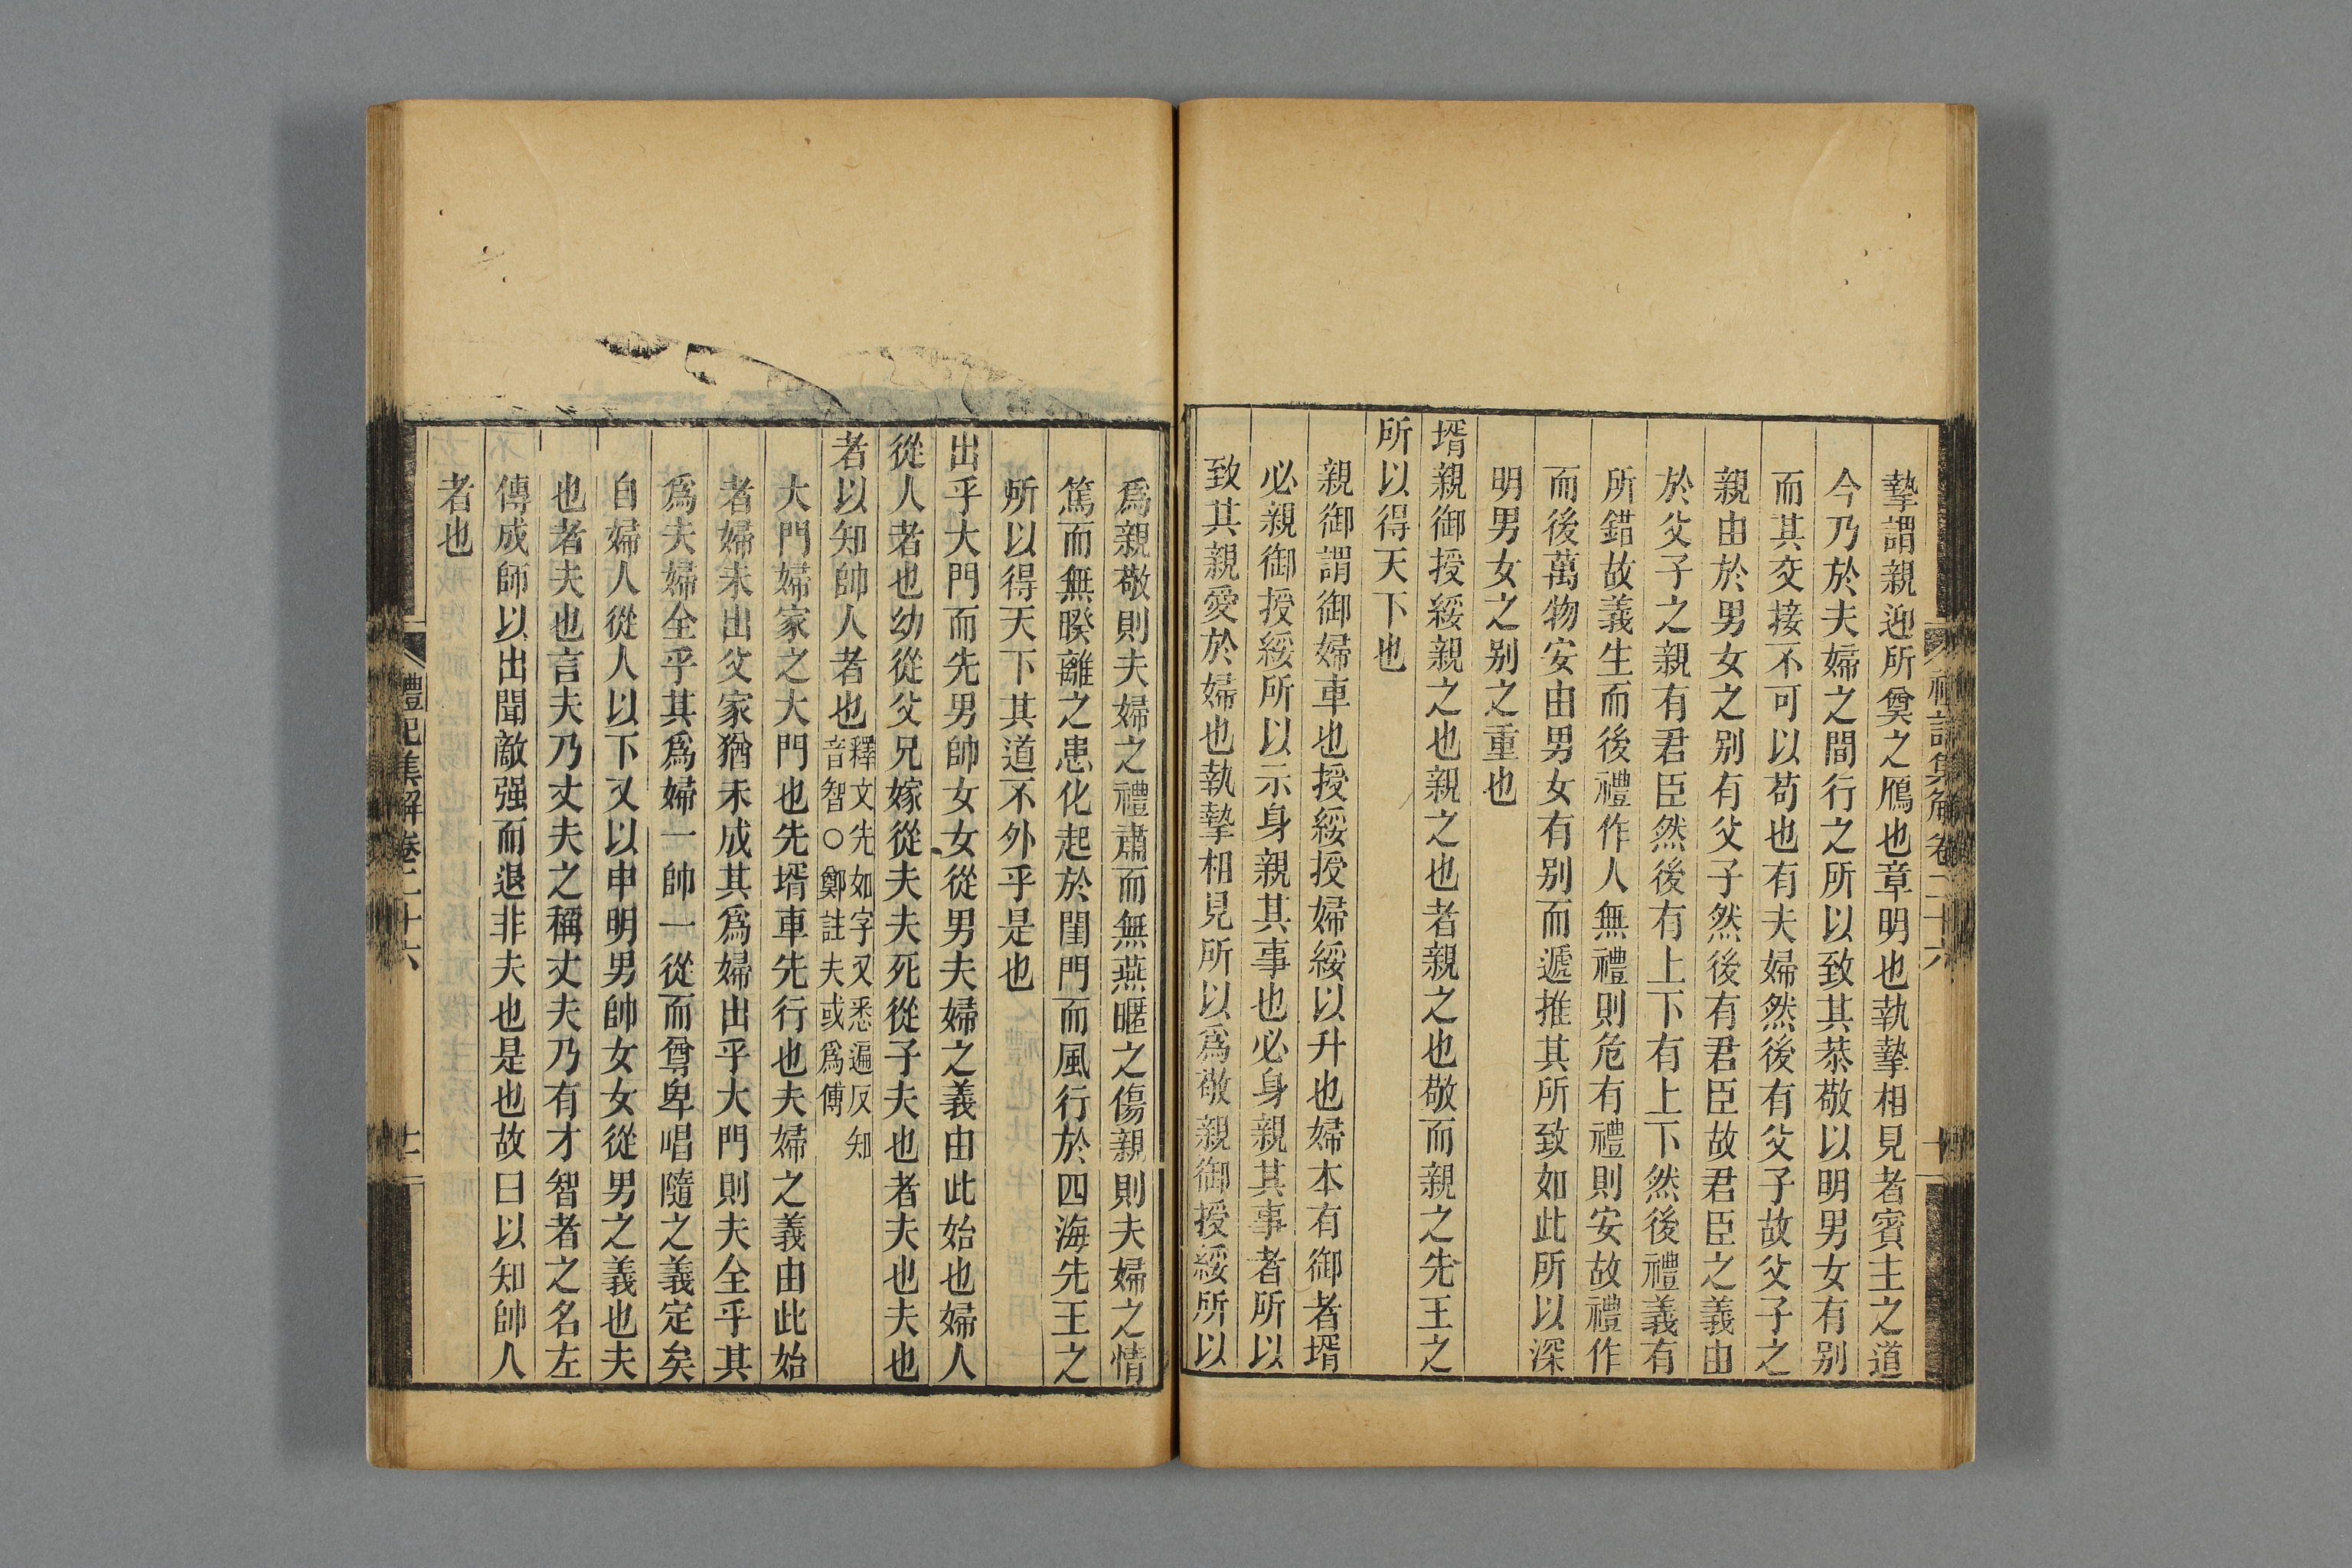 摯謂親迎所奠之鴈也章明也執摯相見者賓主之道
今乃於夫婦之間行之所以致其恭敬以明男女有别
而其交接不可以苟也有夫婦然後有父子故父子之
親由於男女之别有父子然後有君臣故君臣之義由
於父子之親有君臣然後有上下有上下然後禮義有
所錯故義生而後禮作人無禮則危有禮則安故禮作
而後萬物安由男女有别而遞推其所致如此所以深
明男女之别之重也
壻親御授綏親之也親之也者親之也敬而親之先王之
所以得天下也
親御謂御婦車也授綏授婦綏以升也婦本有御者壻
必親御授綏所以示身親其事也必身親其事者所以
致其親愛於婦也執摯相見所以爲敬親御授綏所以
禮記集解卷二十六
十
爲親敬則夫婦之禮肅而無燕暱之傷親則夫婦之情
篤而無暌離之患化起於閨門而風行於四海先王之
所以得天下其道不外乎是也
出乎大門而先男帥女女從男夫婦之義由此始也婦人
從人者也幼從父兄嫁從夫夫死從子夫也者夫也夫也
者以知帥人者也釋文先如字又悉遍反知
音智○鄭註夫或爲傅
大門婦家之大門也先壻車先行也夫婦之義由此始
者婦未出父家猶未成其爲婦出乎大門則夫全乎其
爲夫婦全乎其爲婦一帥一從而尊卑唱隨之義定矣
自婦人從人以下又以申明男帥女女從男之義也夫
也者夫也言夫乃丈夫之稱丈夫乃有才智者之名左
傳成師以出聞敵强而退非夫也是也故曰以知帥人
者也
禮記集解卷二十六
十一